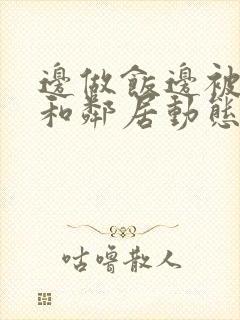 邊做飯邊被
和鄰居動態
咕嚕散人